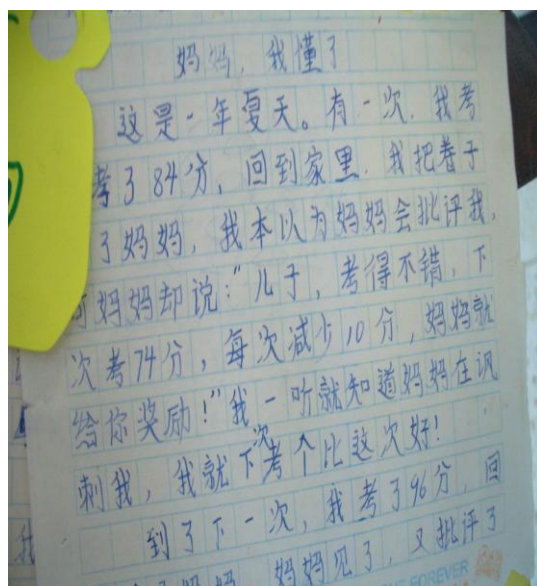 妈妈，我懂了
这是一年夏天。有一次，我考
考了84分，回到家里，我把卷子
了妈妈，我本以为妈妈会批评我，
可妈妈却说：“儿子，考得不错，下
次考74分，每次减少10分，妈妈就
给你奖励！”我一听就知道妈妈在讽
刺我，我就下次考个比这次好！
到了下一次，我考了96分，回
妈妈，妈妈见了，又批评了
我
FOREVER